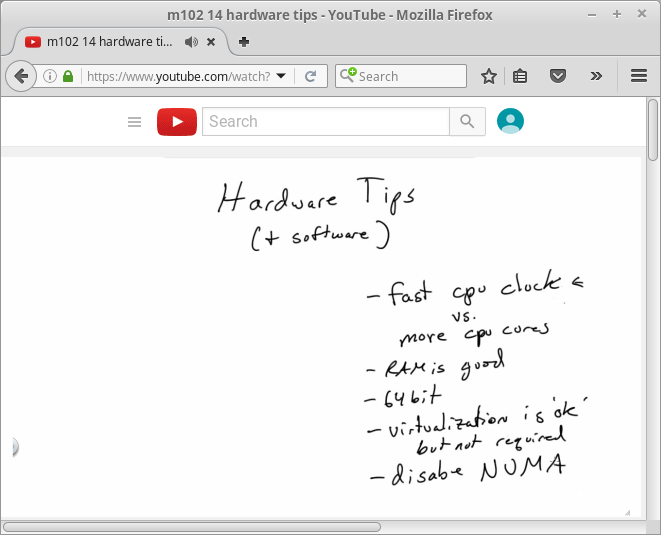 m102 14 hardware tips - YouTube - Mozilla Firefox
m102 14 hardware ti...
https://www.youtube.com/watch?
Search
Search
Hardware Tips
(+ software)
- fast cpu clock ←
vs.
more cpu cores
- RAM is good
- 64 bit
- virtualization is 'ok'
but not required
- disabe NUMA